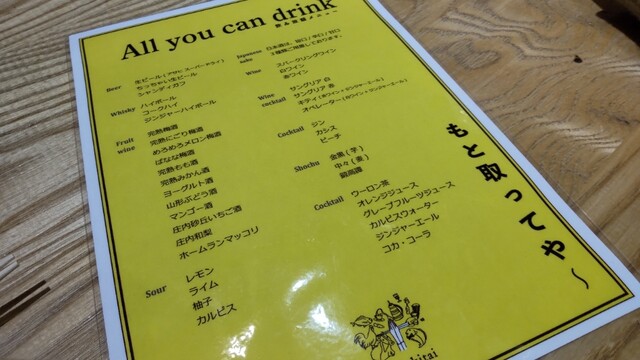 All you can drink
飲み放題メニュー
Beer
生ビール(アサヒ スーパードライ)
ちっちゃい生ビール
シャンディガフ
Whisky
ハイボール
コークハイ
ジンジャーハイボール
Fruit wine
完熟梅酒
完熟にごり梅酒
めろめろメロン梅酒
ばなな梅酒
完熟もも酒
完熟みかん酒
ヨーグルト酒
山形ぶどう酒
マンゴー酒
庄内砂丘いちご酒
庄内和梨
ホームランマッコリ
Sour
レモン
ライム
柚子
カルピス
Japanese sake
日本酒は、甘口/辛口/旨口
3種類ご用意しております。
Wine
スパークリングワイン
白ワイン
赤ワイン
Wine cocktail
サングリア 白
サングリア 赤
キティ(赤ワイン×ジンジャーエール)
オペレーター(白ワイン×ジンジャーエール)
Cocktail
ジン
カシス
ピーチ
Shochu
金黒(芋)
中々(麦)
鍛高譚
Cocktail
ウーロン茶
オレンジジュース
グレープフルーツジュース
カルピスウォーター
ジンジャーエール
コカ・コーラ
もと取ってや〜